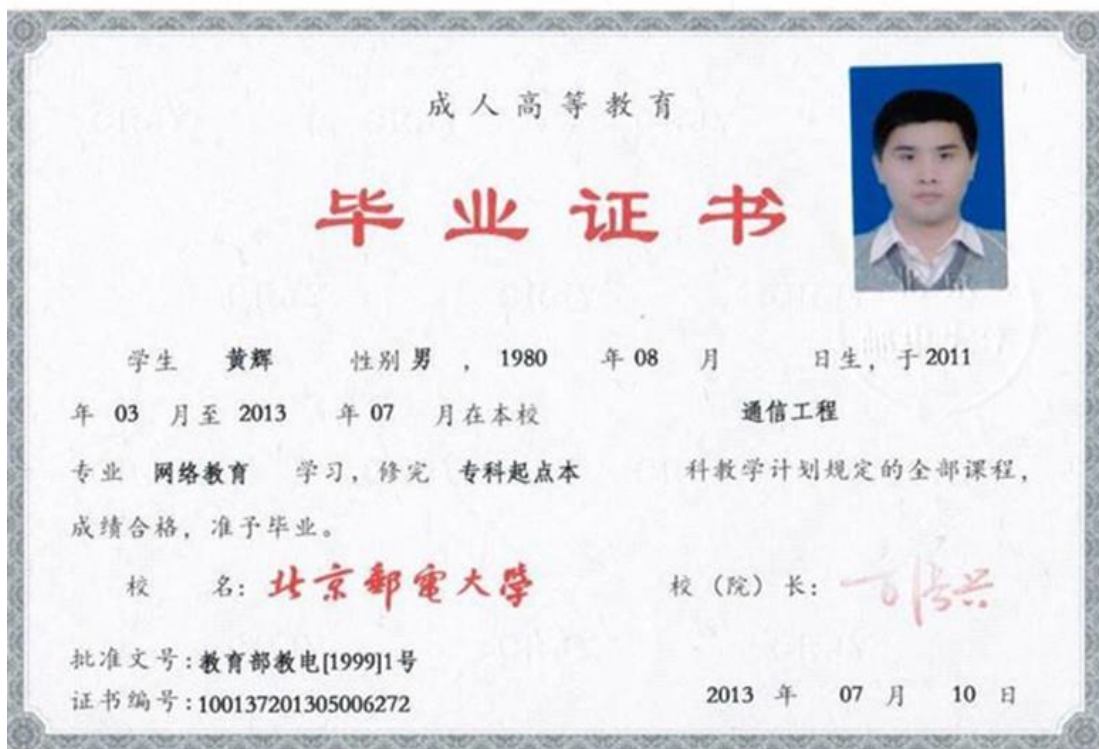 成人高等教育
毕业证书
学生 黄辉 性别 男 ，1980 年 08 月 日生，于 2011
年 03 月至 2013 年 07 月在本校 通信工程
专业 网络教育 学习，修完 专科起点本 科教学计划规定的全部课程，
成绩合格，准予毕业。
校 名：北京郵電大學 校（院）长：
批准文号：教育部教电[1999]1号
证书编号：100137201305006272 2013 年 07 月 10 日